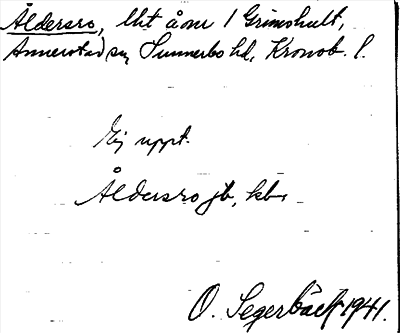 Åldersro, lht å om 1 Grimshult,
Annerstad sn, Sunnerbo hd, Kronob. l.
Ej uppt.
Åldersro jb, kb.
O. Segerbäck 1941.